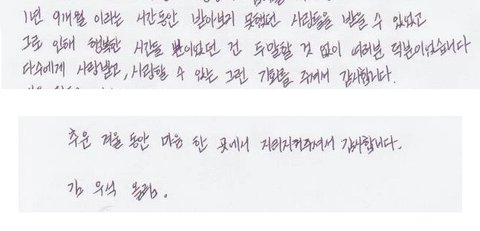 1년 9개월 이라는 시간동안 받아보지 못했던 사랑들을 받을 수 있었고
그로 인해 행복한 시간들 뿐이었던 건 두말할 것 없이 여러분 덕분이었습니다
다수에게 사랑받고, 사랑할 수 있는 그런 기회를 주셔서 감사합니다.
추운 겨울 동안 마음 한 곳에서 자리지켜주셔서 감사합니다.
김 우석 올림.